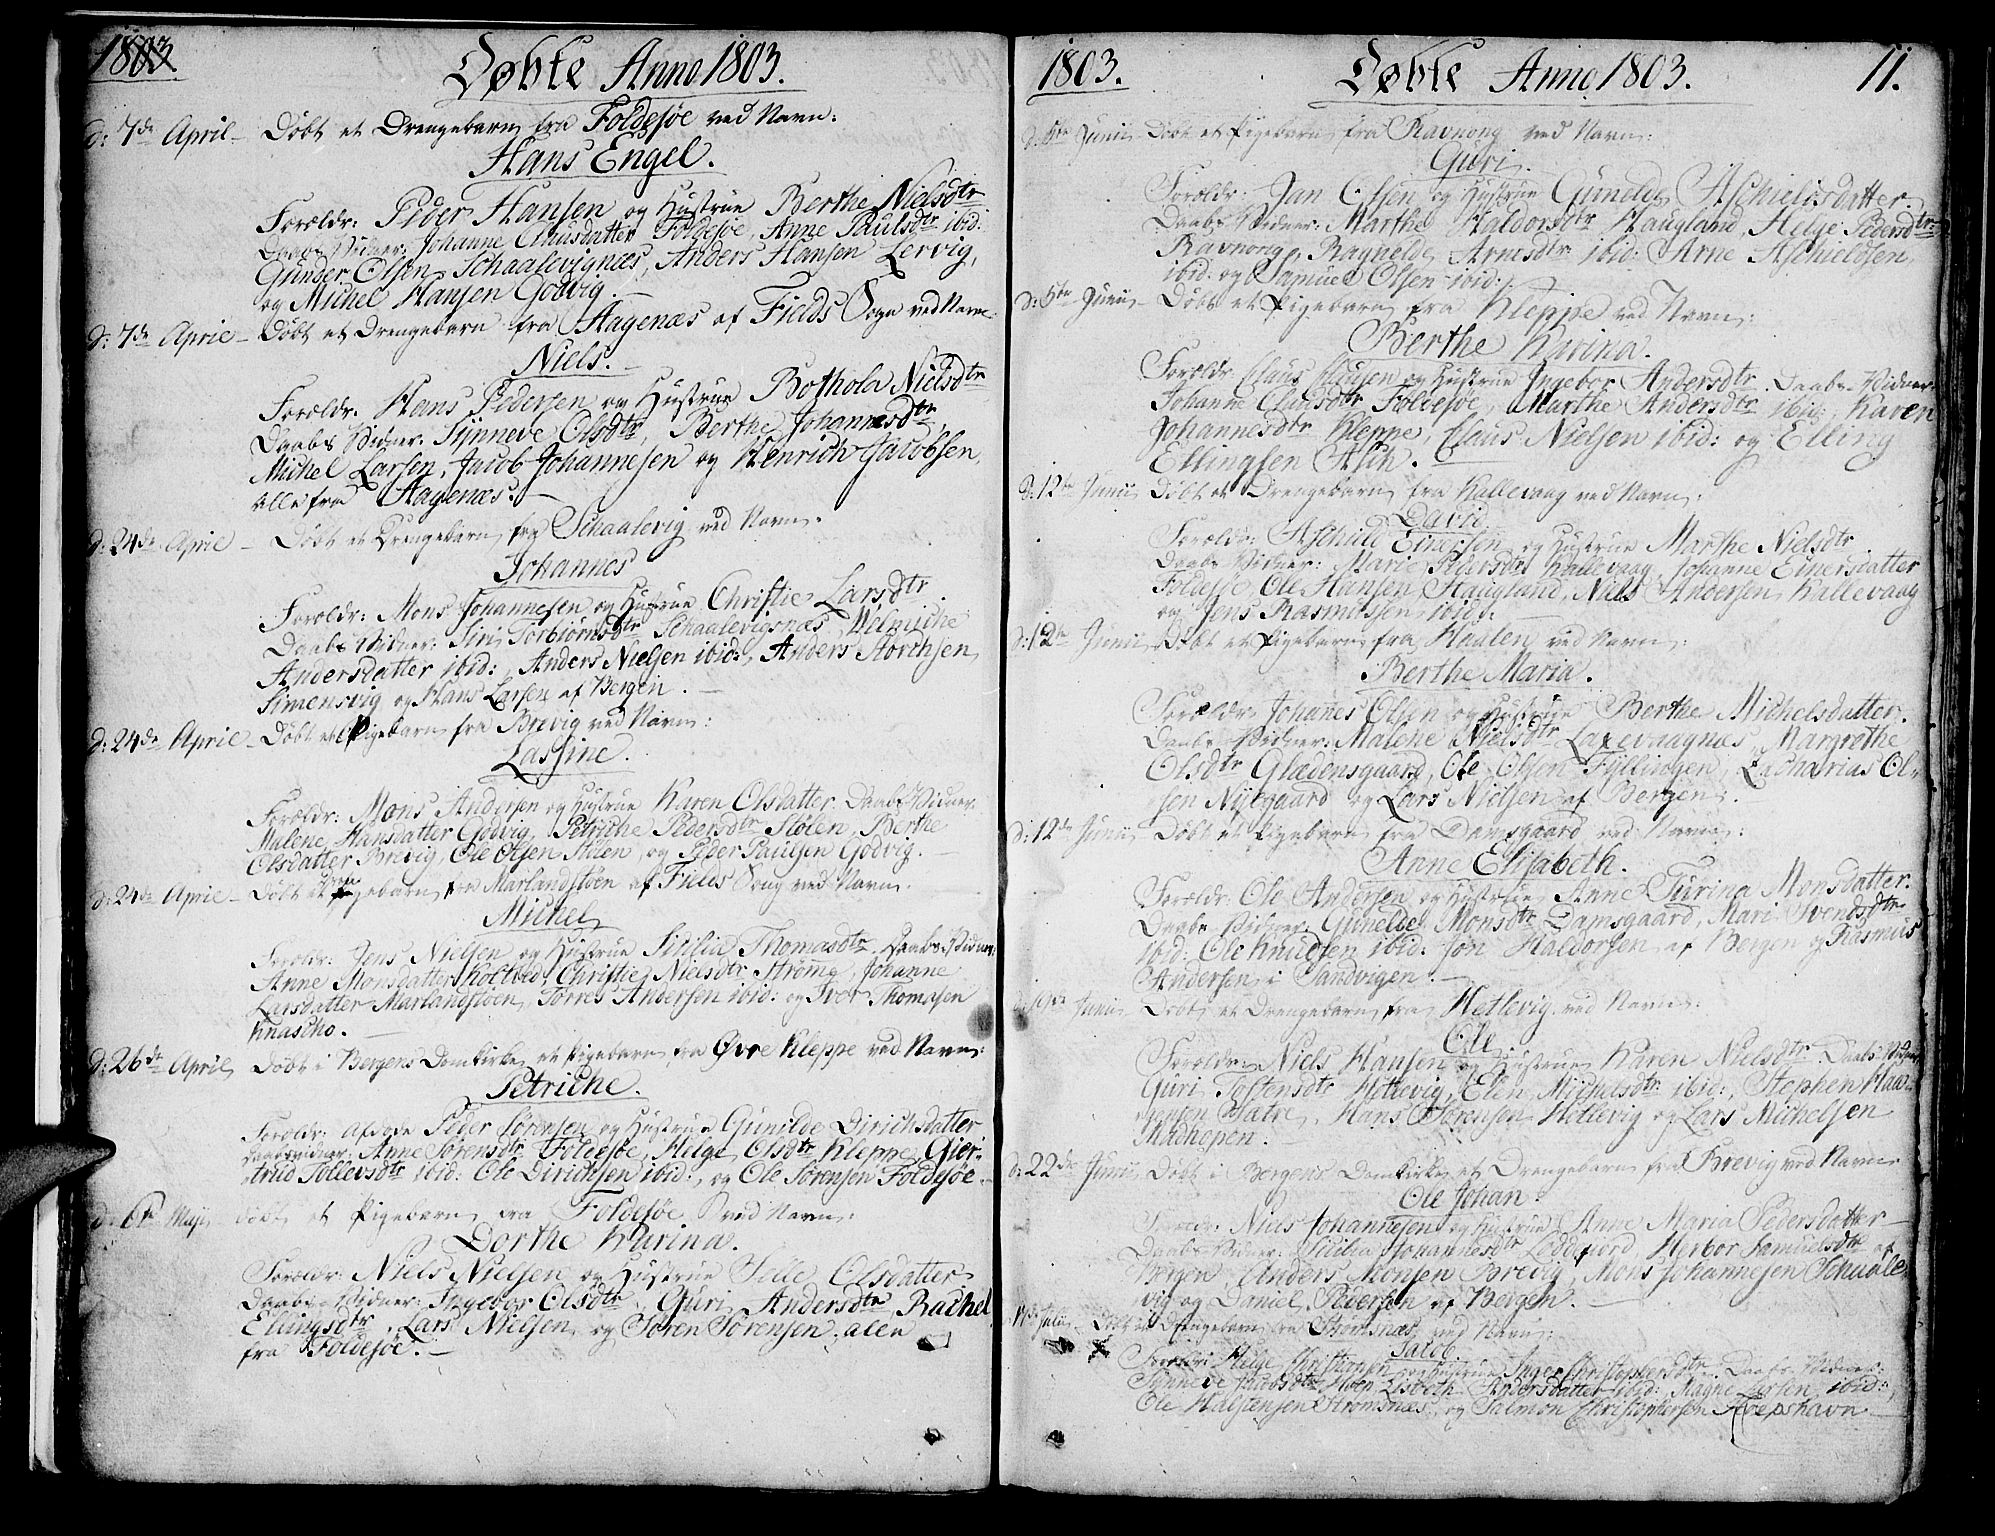 1803.
Døbte Anno 1803.
d: 7de April – Døbt et Drengebarn fra Foldesøe ved Navn:
Hans Engel.
Foreldr: Peder Hansen og Hustrue Berthe Nielsdtr
Daabs Vidner: Johanne Clausdatter Foldesøe, Anne Paulsdtr ibid:
Gunder Olsen Schaalevignæs, Anders Hansen Lervig,
og Michel Hansen Godvig. –
d: 7de April – Døbt et Drengebarn fra Hagenæs af Fields Sogn ved Navn:
Niels. –
Foreldr: Hans Pedersen og Hustrue Bothola Nielsdtr
Daabs Vidner: Synneve Olsdtr, Berthe Johannesdtr,
Michel Larsen, Jacob Johannesen og Henrich Jacobsen,
alle fra Hagenæs. –
d: 24de April – Døbt et Drengebarn fra Schaalevig ved Navn.
Johannes
Foreldr: Mons Johannesen og Hustrue Christie Larsdtr
Daabs Vidner: Siri Torbjørnsdtr Schaalevigsnæs, Welmiche
Andersdatter ibid:, Anders Nielsen ibid:, Anders Storchsen
Simensvig og Hans Larsen af Bergen. –
d: 24de April – Døbt et Pigebarn fra Brevig ved Navn:
Lassine.
Foreldr: Mons Andersen og Hustrue Karen Olsdatter. Daabs Vidner:
Malene Hansdatter Godvig, Petriche Pedersdtr Stølen, Berthe
Olsdatter Brevig, Ole Olsen Stølen, og Peder Paulsen Godvig. –
d: 24de April – Døbt et Drengebarn fra Marlandstøen af Fields Sogn ved Navn.
Michel
Foreldr: Jens Nielsen og Hustrue Sicilia Thomasdtr. Daabs Vidner:
Anne Monsdatter Koltved, Christie Nielsdtr Strømg, Johanne
Larsdatter Marlandstøen, Torres Andersen ibid: og Iver Thomasen
Knascho. –
d: 26de April Døbt i Bergens Domkirke et Pigebarn fra Øvre Kleppe ved Navn:
Petriche.
Foreldr: afdøde Peder Sørensen og Hustrue Gunilde Dirichsdatter
Daabsvidner: Anne Sørensdtr Foldesøe, Helge Olsdtr Kleppe, Gier-
trud Tollevsdtr ibid: Ole Dirichsen ibid:, og Ole Sørensen Foldesøe. –
d: 6te Maji – døbt et Pigebarn fra Foldesøe ved Navn:
Dorthe Karina.
Foreldr: Niels Nielsen og Hustrue Sille Olsdatter
Daabs Vidner: Ingebor Olsdtr, Guri Andersdtr, Rachel
Ellingsdtr, Lars Nielsen og Søren Sørensen, alle
fra Foldesøe. –
1803.
Døbte Anno 1803.
11.
d: 5te Junii Døbt et Pigebarn fra Ravnong ved Navn:
Guri.
Foreldr: Jan Olsen og Hustrue Gunelde Aschieldsdatter
Daabs Vidner: Marthe Haldorsdtr Haugland, Helge Pedersdtr
Ravnong, Ragnelde Arnesdtr ibid: Arne Aschieldsen
ibid: og Samuel Olsen ibid:
d: 5te Junii Døbt et Pigebarn fra Kleppe ved Navn:
Berthe Karina.
Foreldr: Claus Clausen og Hustrue Ingebor Andersdtr. Daabs Vidner:
Johanne Clausdtr Foldesøe, Marthe Andersdtr ibid:, Karen
Johannesdtr Kleppe, Claus Nielsen ibid: og Elling
Ellingsen Ask.
d: 12te Junii Døbt et Drengebarn fra Kallevaag ved Navn:
David.
Foreldr: Aschild Einersen og Hustrue Marthe Nielsdtr
Daabs Vidner: Marie Pedersdtr Kallevaag, Johanne Einersdatter
Foldesøe, Ole Hansen Haugland, Niels Andersen Kallevaag
og Jens Rasmussen ibid:
d: 12te Junii Døbt et Pigebarn fra Haalen ved Navn:
Berthe Maria.
Foreldr: Johanes Olsen og Hustrue Berthe Michelsdatter.
Daabs Vidner: Malene Nielsdtr Laxevaagnæs, Margrethe
Olsdtr Glædensgaard, Ole Olsen Fyllingen, Zacharias Ol-
sen Nygaard og Lars Nielsen af Bergen. –
d: 12te Junii Døbt et Pigebarn fra Damsgaard ved Navn:
Anne Elisabeth.
Foreldr: Ole Andersen og Hustrue Anne Turina Monsdatter.
Daabs Vidner: Gunelde Monsdtr Damsgaard, Mari Svendsdtr
ibid: Ole Knudsen ibid: Jon Haldorsen af Bergen og Rasmus
Andersen i Sandvigen. –
d: 19de Junii Døbt et Drengebarn fra Hetlevig ved Navn:
Ole.
Foreldr: Niels Hansen og Hustrue Karen Nielsdtr. Daabs Vidner
Guri Tostensdtr Hetlevig, Elen Michelsdtr ibid:, Stephen Haa-
gensen Sætre, Hans Sørensen Hetlevig og Lars Michelsen
Madhopen.
d: 22de Junii Døbt i Bergens Domkirke et Drengebarn fra Brevig ved Navn
Ole Johan.
Foreldr: Niels Johannesen og Hustrue Anne Maria Pedersdatter –
Daabs Vidner: Sicilia Johannesdtr Leddefiord, Herbor Samuelsdtr af
Bergen, Anders Monsen Brevig, Mons Johannesen Schaale-
vig og Daniel Pedersen af Bergen. –
Julii – Døbt et Pigebarn fra Strømsnæs ved Navn:
Jacob
Foreldr: Helge Christophersen og Hustrue Inger Christophersdtr. Daabs Vidner:
Synneve Jacobsdtr Hoen, Lisbeth Andersdatter ibid:, Magne Larsen ibid:,
Ole Halstensen Strømsnæs, og Salmon Christophersen Floepshavn –